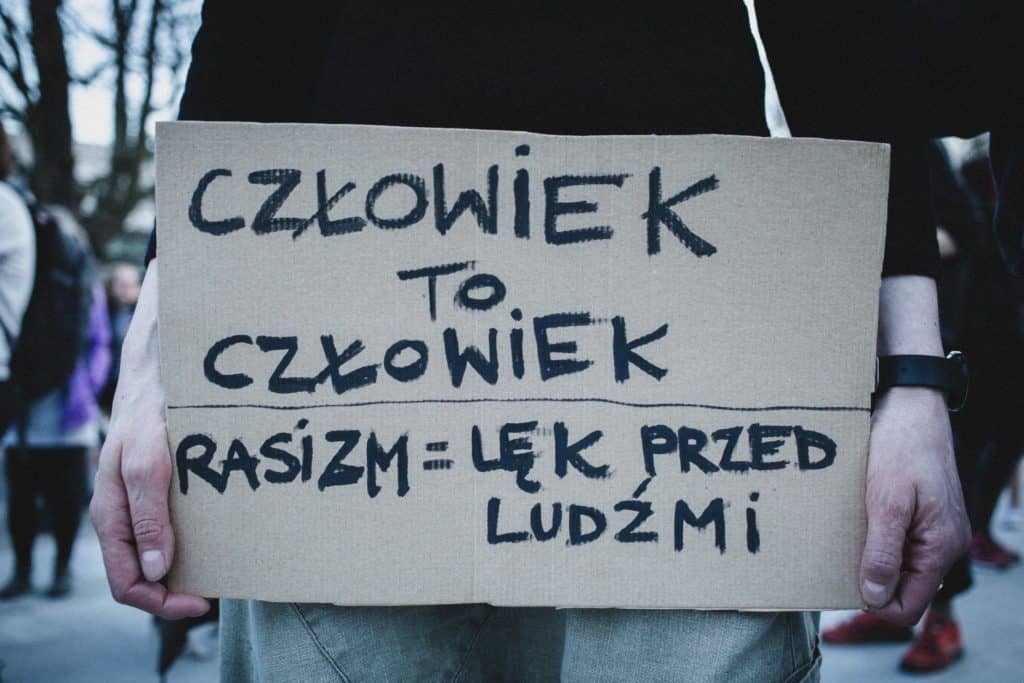 CZŁOWIEK
TO
CZŁOWIEK
RASIZM = LĘK PRZED
LUDŹMI